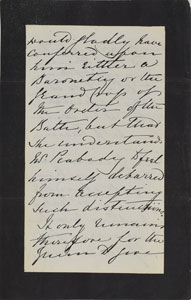 would gladly have
conferred upon
him either a
Baronetcy or the
Grand Cross of
the Order of the
Bath, but that
she understands
Mr Peabody to feel
himself debarred
from accepting
such distinctions.
It only remains
therefore for the
Queen to give